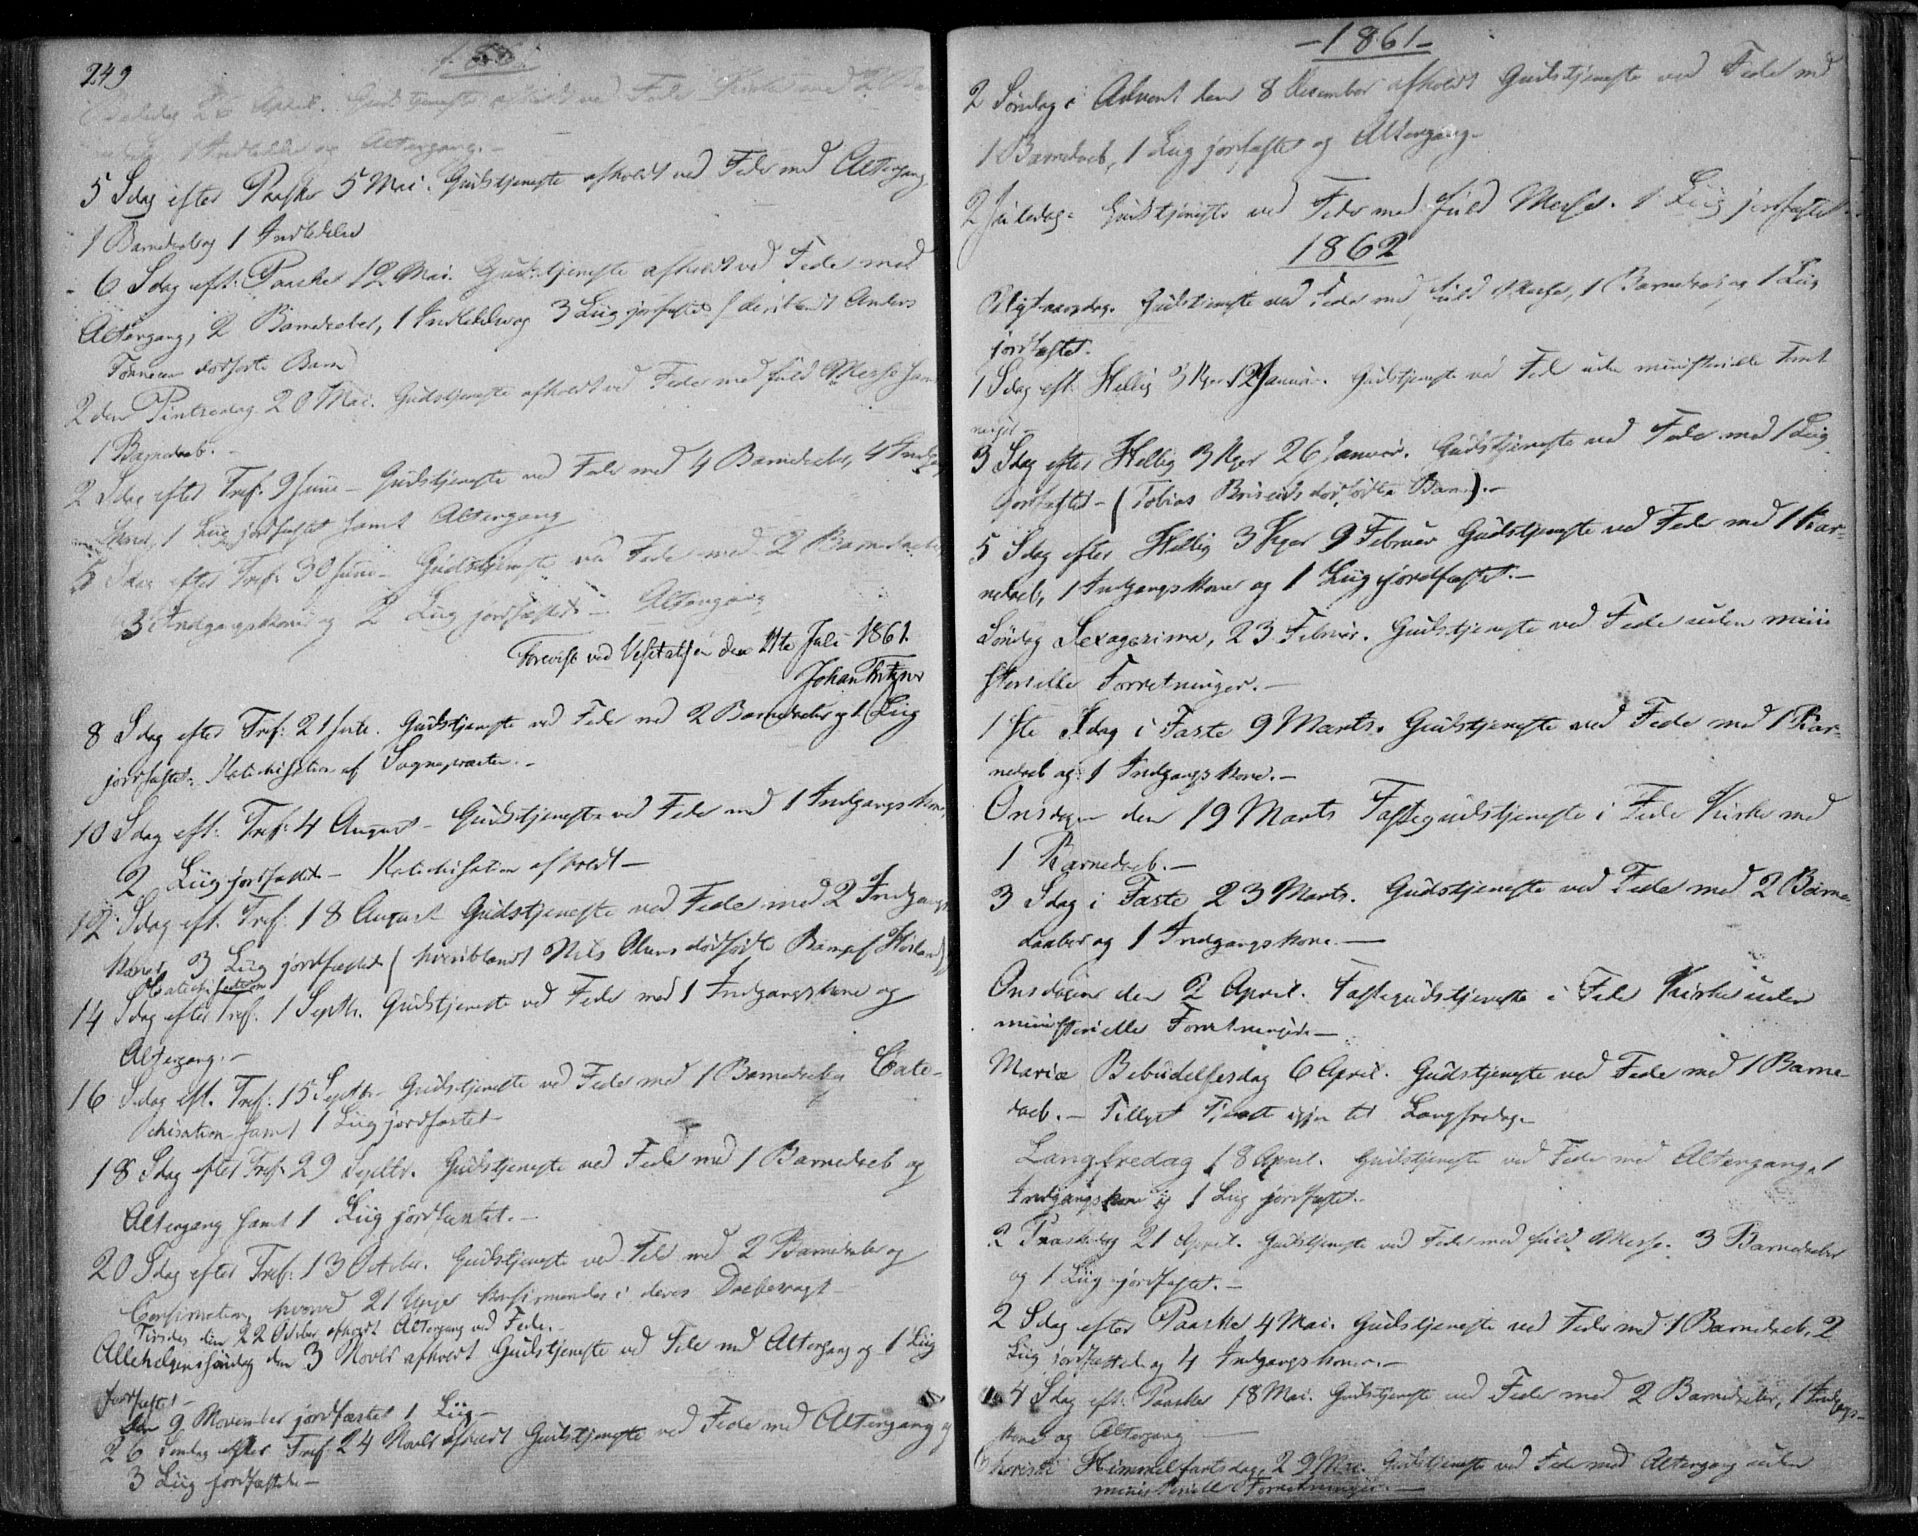 249
1861
26 April. Gudstjeneste afholdt ved Fede Kirke med 2
1 Indledelse og Altergang.-
5 Sdag efter Paaske 5 Mai. Gudstjeneste afholdt ved Fede med Altergang,
1 Barnedaab og 1 Indledelse
6 Sdag eft. Paaske 12 Mai. Gudstjeneste afholdt ved Fede med
Altergang, 2 Barnedaaber, 1 Indledelse og 3 Liig jordfæstede (deriblandt Anders
dødfødte Barn)
2den Pintsedag 20 Mai. Gudstjeneste afholdt ved Fede med fuld Messe samt
1 Barnedaab.-
2 Sdag efter Tref. 9 Juni - Gudstjeneste ved Fede med 4 Barnedaaber, 4 Indgangs
koner, 1 Liig jordfæstet samt Altergang
5 Sdag efter Tref. 30 Juni - Gudstjeneste ved Fede med 2 Barnedaaber
3 Indgangskoner og 2 Liig jordfæstede - Altergang
Forevist ved Visitatsen den 11te Juli 1861.
Johan Fritzner
8 Sdag efter Tref. 21 Juli. Gudstjeneste ved Fede med 2 Barnedaaber og 1 Liig
jordfæstet. Katechisation af Sognepræsten.-
10 Sdag eft. Tref. 4 August - Gudstjeneste ved Fede med 1 Indgangskone,
2 Liig jordfæstede - Katechisation afholdt -
12 Sdag eft. Tref. 18 August Gudstjeneste ved Fede med 2 Indgangs
koner, 3 Liig jordfæstede (hvoriblandt Nils Olsens dødfødte Barn
Catechisation
14 Sdag efter Tref. 1 Septbr. Gudstjeneste ved Fede med 1 Indgangskone og
Altergang.-
16 Sdag eft. Tref. 15 Septbr. Gudstjeneste ved Fede med 1 Barnedaab og Cate-
chisation samt 1 Liig jordfæstet -
18 Sdag efter Tref. 29 Septbr. Gudstjeneste ved Fede med 1 Barnedaab og
Altergang samt 1 Liig jordfæstet.-
20 Sdag efter Tref. 13 October. Gudstjeneste ved Fede med 2 Barnedaaber og
Confirmation, hvorved 21 Unge konfirmeredes i deres Daabspagt -
Tirsdag den 22 October afholdt Altergang ved Fede.-
Allehelgenssøndag den 3 Novbr afholdt Gudstjeneste ved Fede med Altergang og 1 Liig
jordfæstet -
den 9 November jordfæstet 1 Liig -
26 Søndag efter Tref. 24 Novbr afholdt Gudstjeneste ved Fede med Altergang og
3 Liig jordfæstede -
-1861-
2 Søndag i Advent den 8 December afholdt Gudstjeneste ved Fede med
1 Barnedaab, 1 Liig jordfæstet og Altergang -
2 Juledag - Gudstjeneste ved Fede med fuld Messe. 1 Liig jordfæstet -
1862
Nytaarsdag. Gudstjeneste ved Fede med fuld Messe, 1 Barnedaab og 1 Liig
jordfæstet.
1 Sdag eft. Hellig 3 Kger 12 Januar. Gudstjeneste ved Fede uden ministerielle Forret
ninger -
3 Sdag efter Hellig 3 Kger 26 Januar. Gudstjeneste ved Fede med 1 Liig
jordfæstet - (Tobias dødfødte Barn).-
5 Sdag efter Hellig 3 Kger 9 Februar Gudstjeneste ved Fede med 1 Bar-
nedaab, 1 Indgangskone og 1 Liig jordfæstet.-
Søndag Sexagesima, 23 Februar. Gudstjeneste ved Fede uden mini
sterielle Forretninger.-
1ste Sdag i Faste 9 Marts. Gudstjeneste ved Fede med 1 Bar-
nedaab og 1 Indgangskone.-
Onsdagen den 19 Marts Fastegudstjeneste i Fede Kirke med
1 Barnedaab.-
3 Sdag i Faste 23 Marts. Gudstjeneste ved Fede med 2 Barne
daaber og 1 Indgangskone.-
Onsdagen den 2 April. Fastegudstjeneste i Fede Kirke uden
ministerielle Forretninger.-
Mariæ Bebudelsesdag 6 April. Gudstjeneste ved Fede med 1 Barne-
daab.- Tillyst igjen til Langfredag -
Langfredag 18 April. Gudstjeneste ved Fede med Altergang, 1
Indgangskone og 1 Liig jordfæstet.
2 Paaskedag 21 April. Gudstjeneste ved Fede med fuld Messe. 3 Barnedaaber
og 1 Liig jordfæstet.-
2 Sdag efter Paaske 4 Mai. Gudstjeneste ved Fede med 1 Barnedaab, 2
Liig jordfæstede og 4 Indgangskoner.-
4 Sdag eft. Paaske 18 Mai. Gudstjeneste ved Fede med 2 Barnedaaber, 1 Indgangs-
kone og Altergang
Christi Himmelfartsdag, 29 Mai. Gudstjeneste ved Fede med Altergang uden
ministerielle Forretninger.-